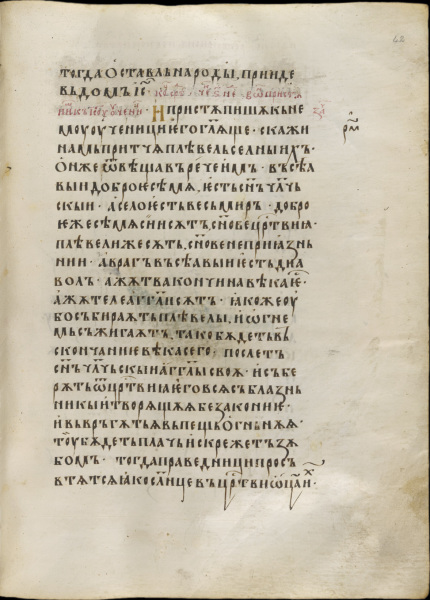 62
тогда оставль народы, прииде
въ домъ іс҃
И пристѫпишѫ къ не
моу оученици его глаше · скажи
намь притчѫ плѣвель селныихъ ·
Онже ѿвѣща въ рече имъ · въсѣа
выи доброе сѣмѧ, есть сн҃ъ чл҃чь
скыи · а село есть весь миръ · добро
еже сѣмѧ сии сѫтъ, сн҃ове цр҃твиꙗ ·
плѣвели же сѫть, сн҃ове неприꙗзнь
нии · а врагъ въсѣавыи есть диа
волъ · а жѫтва кончина вѣка е҃ ·
а жѫтеле аг҃гли сѫтъ · ꙗкоже оу
бо събираѫть плѣвелы, и ѡгне
мь съжигаѫт, тако бѫдеть въ
скончание вѣка сего, послетъ
сн҃ъ чл҃чьскыи аг҃глы своѫ · и събе
рѫть ѿ цр҃твиꙗ его всѧ съблазнь
никы и творѧщѫѫ безаконие ·
и въвръгѫть ѫ въ пещь огньнѫѫ ·
тоу бѫдеть плачь и скрежеть зѫ
бомъ · тогда праведници просъ
втѧтсѧ ꙗко сл҃нце въ цр҃тви ѡц҃а и҃х ·